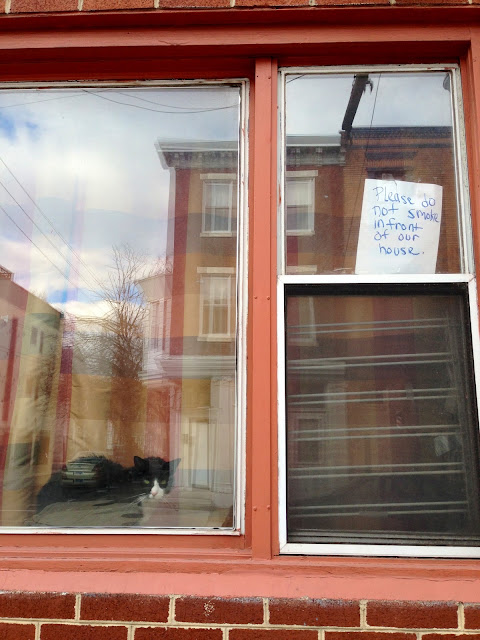 Please do
not smoke
in front
of our
house.